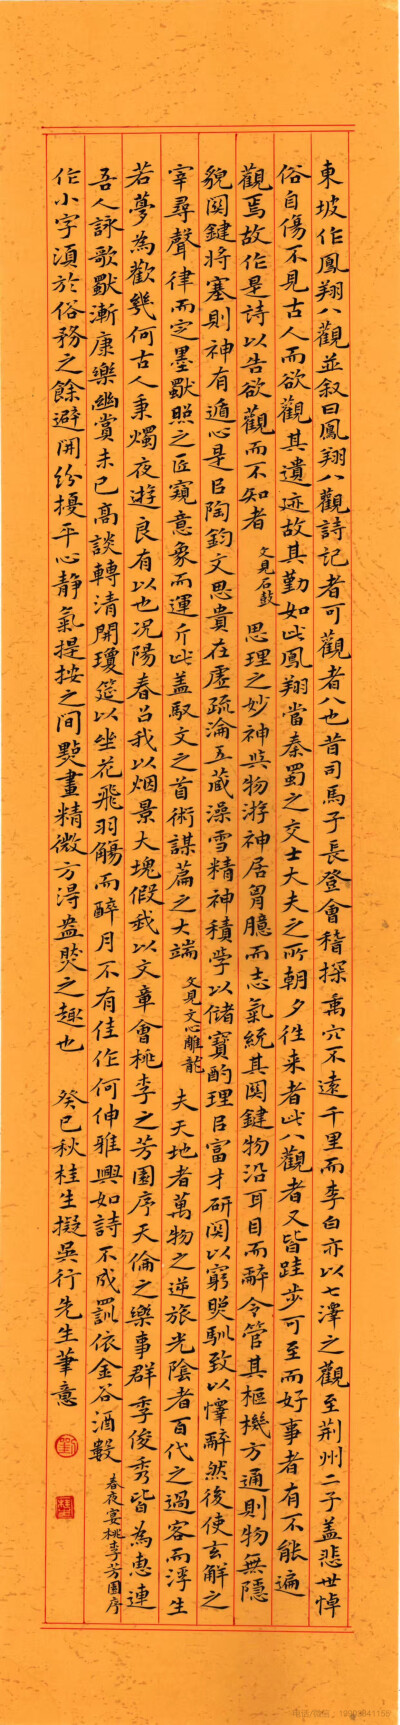 東坡作鳳翔八觀並叙曰鳳翔八觀詩記者可觀者八也昔司馬子長登會稽探禹穴不遠千里而李白亦以七澤之觀至荆州二子盖悲世悼
俗自傷不見古人而欲觀其遺迹故其勤如此鳳翔當秦蜀之交士大夫之所朝夕往来者此八觀者又皆跬步可至而好事者有不能遍
觀焉故作是詩以告欲觀而不知者 文見石鼓 思理之妙神與物游神居胷臆而志氣統其関鍵物沿耳目而辭令管其樞機方通則物無隱
貌関鍵將塞則神有遁心是㠯陶鈞文思貴在虛疏瀹五藏澡雪精神積學以儲寶酌理㠯富才研閱以窮照馴致以懌辭然後使玄解之
宰尋聲律而定墨獨照之匠窺意象而運斤此蓋馭文之首術謀篇之大端 文見文心雕龍 夫天地者萬物之逆旅光陰者百代之過客而浮生
若夢為歡幾何古人秉燭夜遊良有以也况陽春召我以烟景大塊假我以文章會桃李之芳園序天倫之樂事群季俊秀皆為惠連
吾人詠歌獨漸康樂幽賞未已高談轉清開瓊筵以坐花飛羽觴而醉月不有佳作何伸雅興如詩不成罰依金谷酒數 春夜宴桃李芳園序
作小字須於俗務之餘避開紛擾平心静氣提按之間點畫精微方得盎然之趣也 癸巳秋桂生擬吳行先生筆意